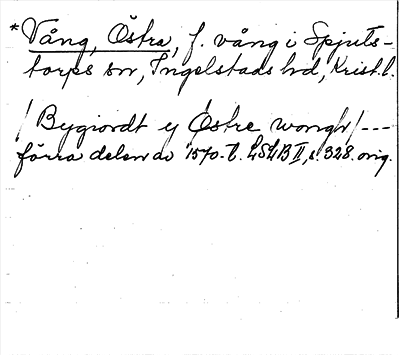 *Vång, Östra, f. vång i Spjuts-
torps sn, Ingelstads hd, Krist. l.
/ Bygiordt y Östre wongh / ---
förra delen av 1570-t. LSLB II, s. 328. orig.